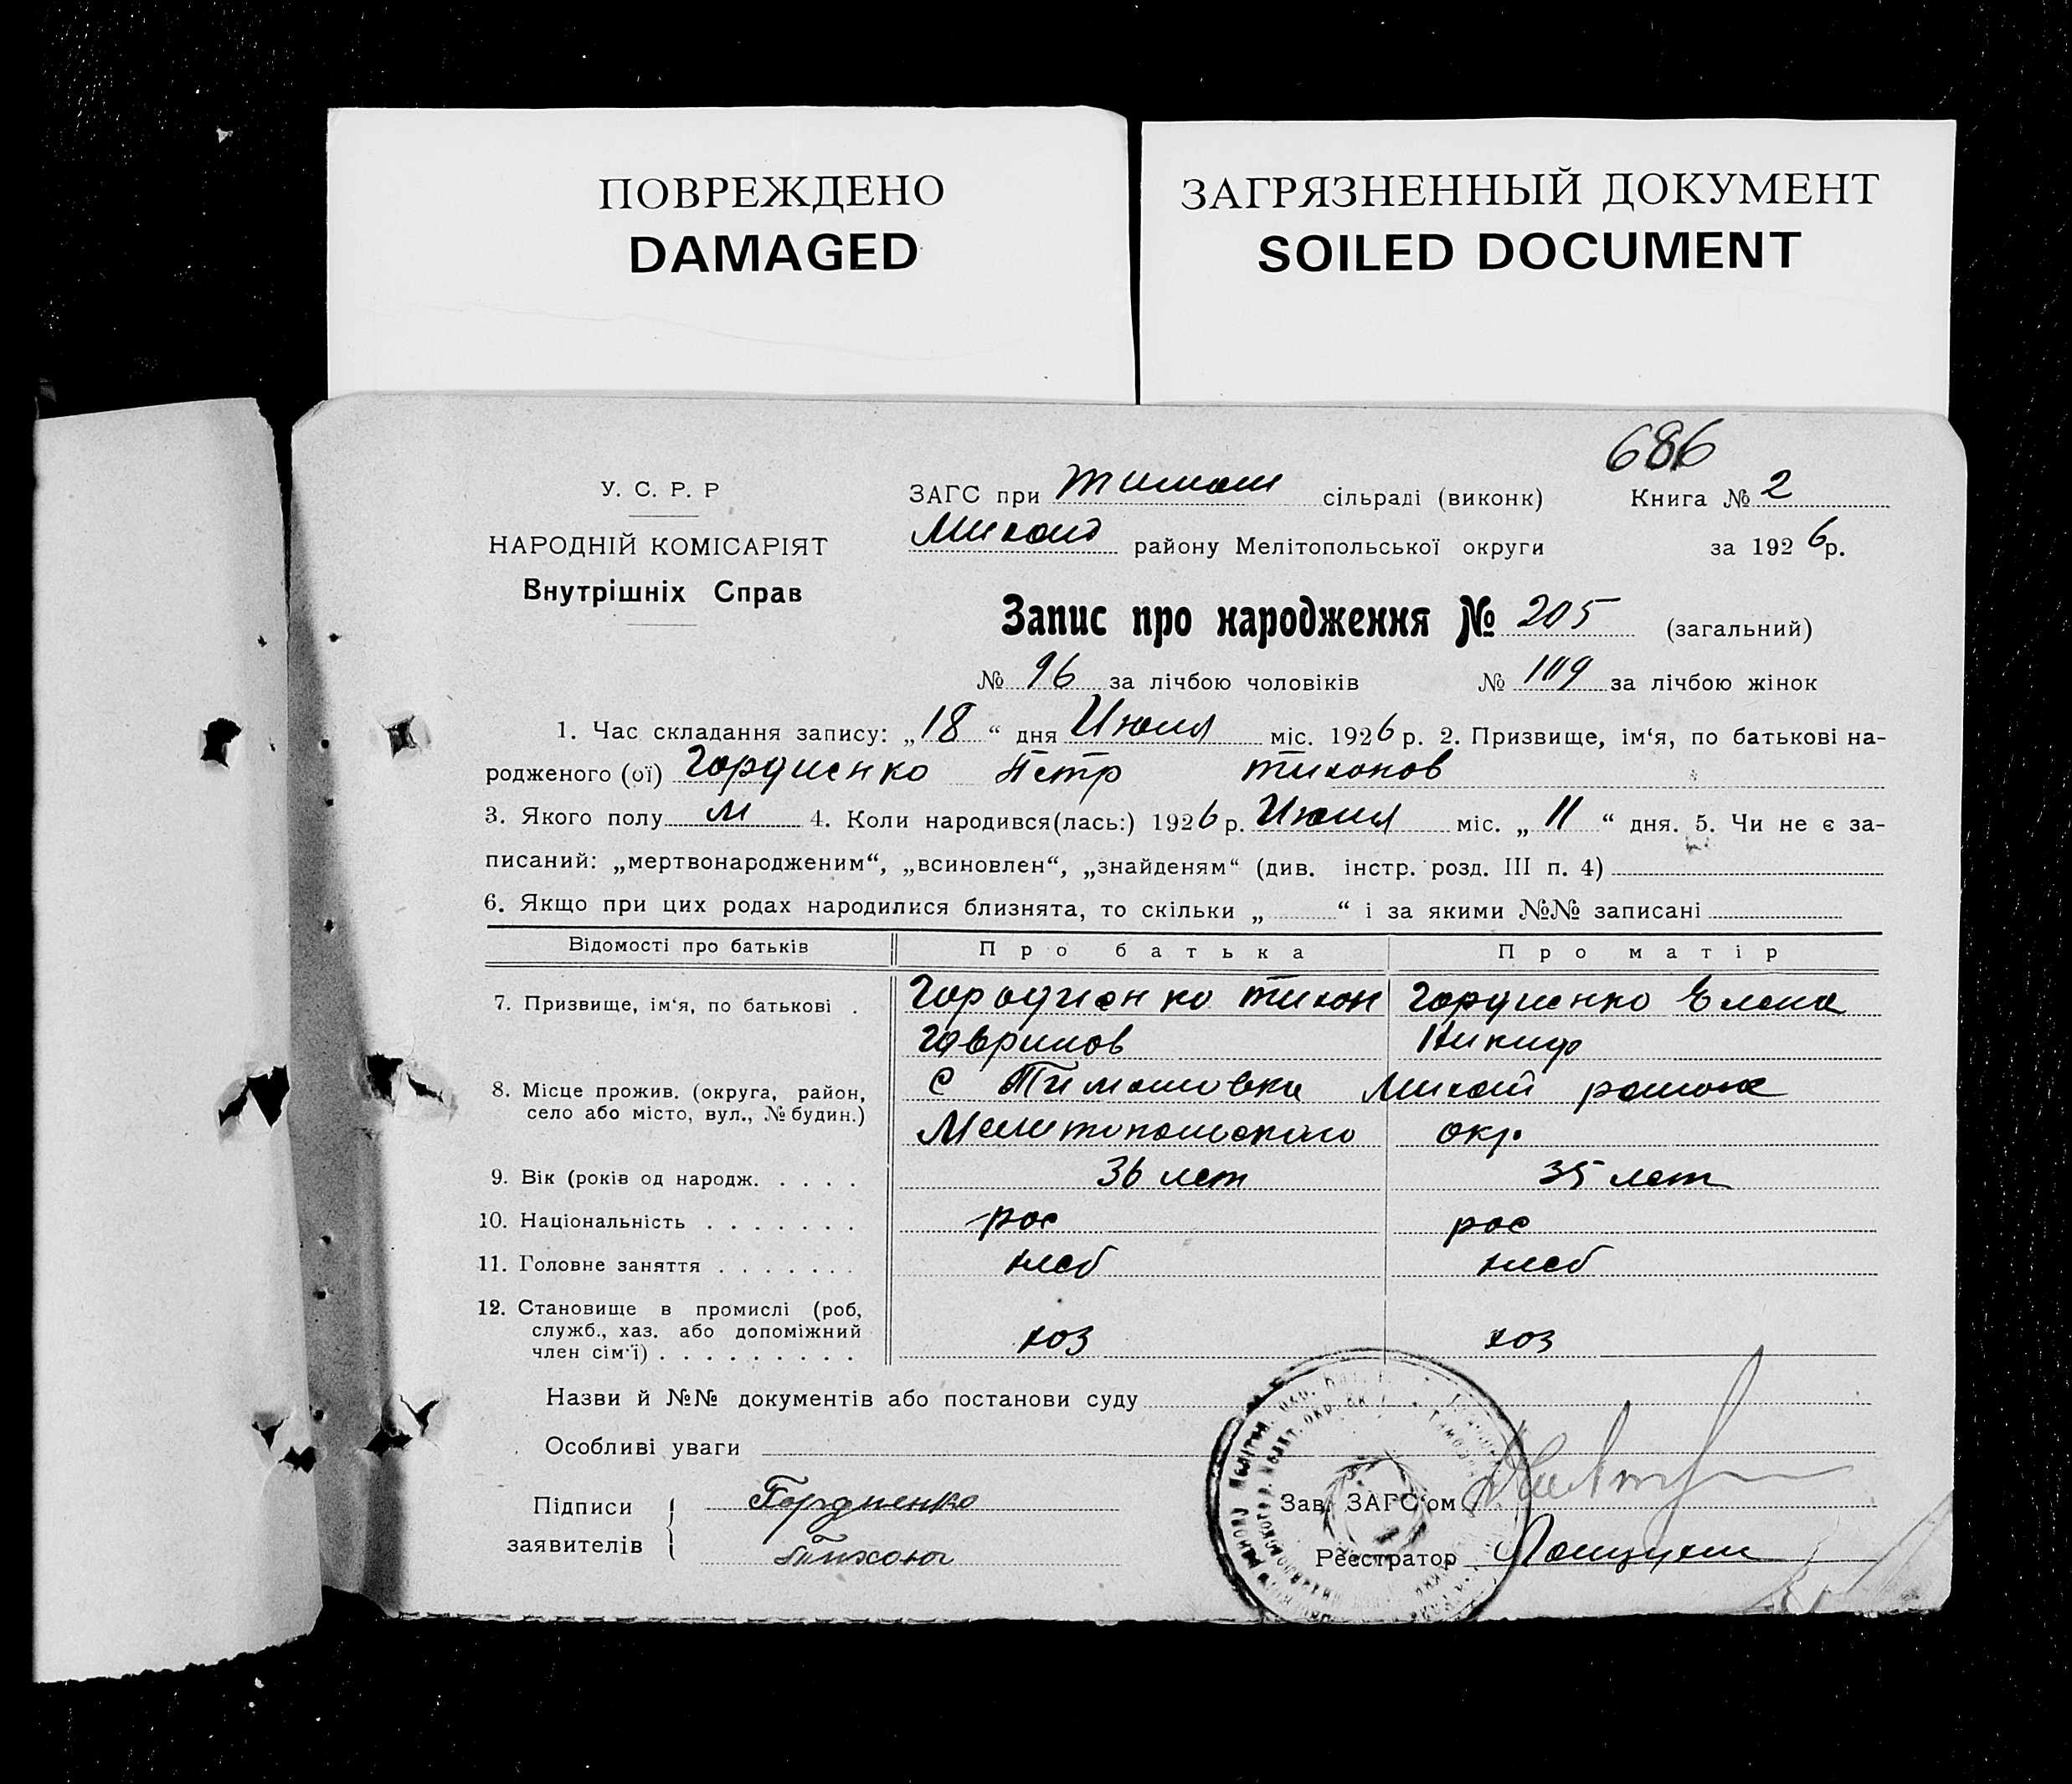 ПОВРЕЖДЕНО
DAMAGED
ЗАГРЯЗНЕННЫЙ ДОКУМЕНТ
SOILED DOCUMENT
686
У. С. Р. Р
НАРОДНІЙ КОМІСАРІЯТ
Внутрішніх Справ
ЗАГС при Тимош сільраді (виконк) Книга № 2
Михайл району Мелітопольської округи за 1926 р.
Запис про народження № 205 (загальний)
№ 96 за лічбою чоловіків № 109 за лічбою жінок
1. Час складання запису: „18“ дня Июля міс. 1926 р. 2. Призвище, ім‘я, по батькові на-
родженого (ої) Гордиенко Петр Тихонов
3. Якого полу м 4. Коли народився(лась:) 1926 р. Июля міс. „11“ дня. 5. Чи не є за-
писаний: „мертвонародженим“, „всиновлен“, „знайденям“ (див. інстр. розд. III п. 4)
6. Якщо при цих родах народилися близнята, то скільки „ “ і за якими №№ записані
Відомості про батьків Про батька Про матір
7. Призвище, ім‘я, по батькові . Гордиенко Тихон Гордиенко Елена
Гаврилов Никиф
8. Місце прожив. (округа, район, с Тимошовка Михай района
село або місто, вул., № будин.) Мелитопольского окр.
9. Вік (років од народж. . . . . 36 лет 35 лет
10. Національність . . . . . . . рос рос
11. Головне заняття . . . . . . . хлеб хлеб
12. Становище в промислі (роб,
служб., хаз. або допоміжний
член сім‘ї) . . . . . . . . . хоз хоз
Назви й №№ документів або постанови суду
Особливі уваги
Підписи заявителів
Гордиенко
Тихон
Зав. ЗАГС‘ом
Реєстратор